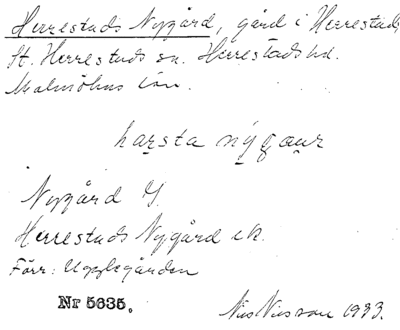 Herrestads Nygård, gård i Herrestad,
St. Herrestads sn. Herrestads hd.
Malmöhus län.
harsta nýgaur
Nygård G.
Herrestads Nygård ek.
Förr: Upplegården
Nr 5635.
Nils Nilsson 1933.